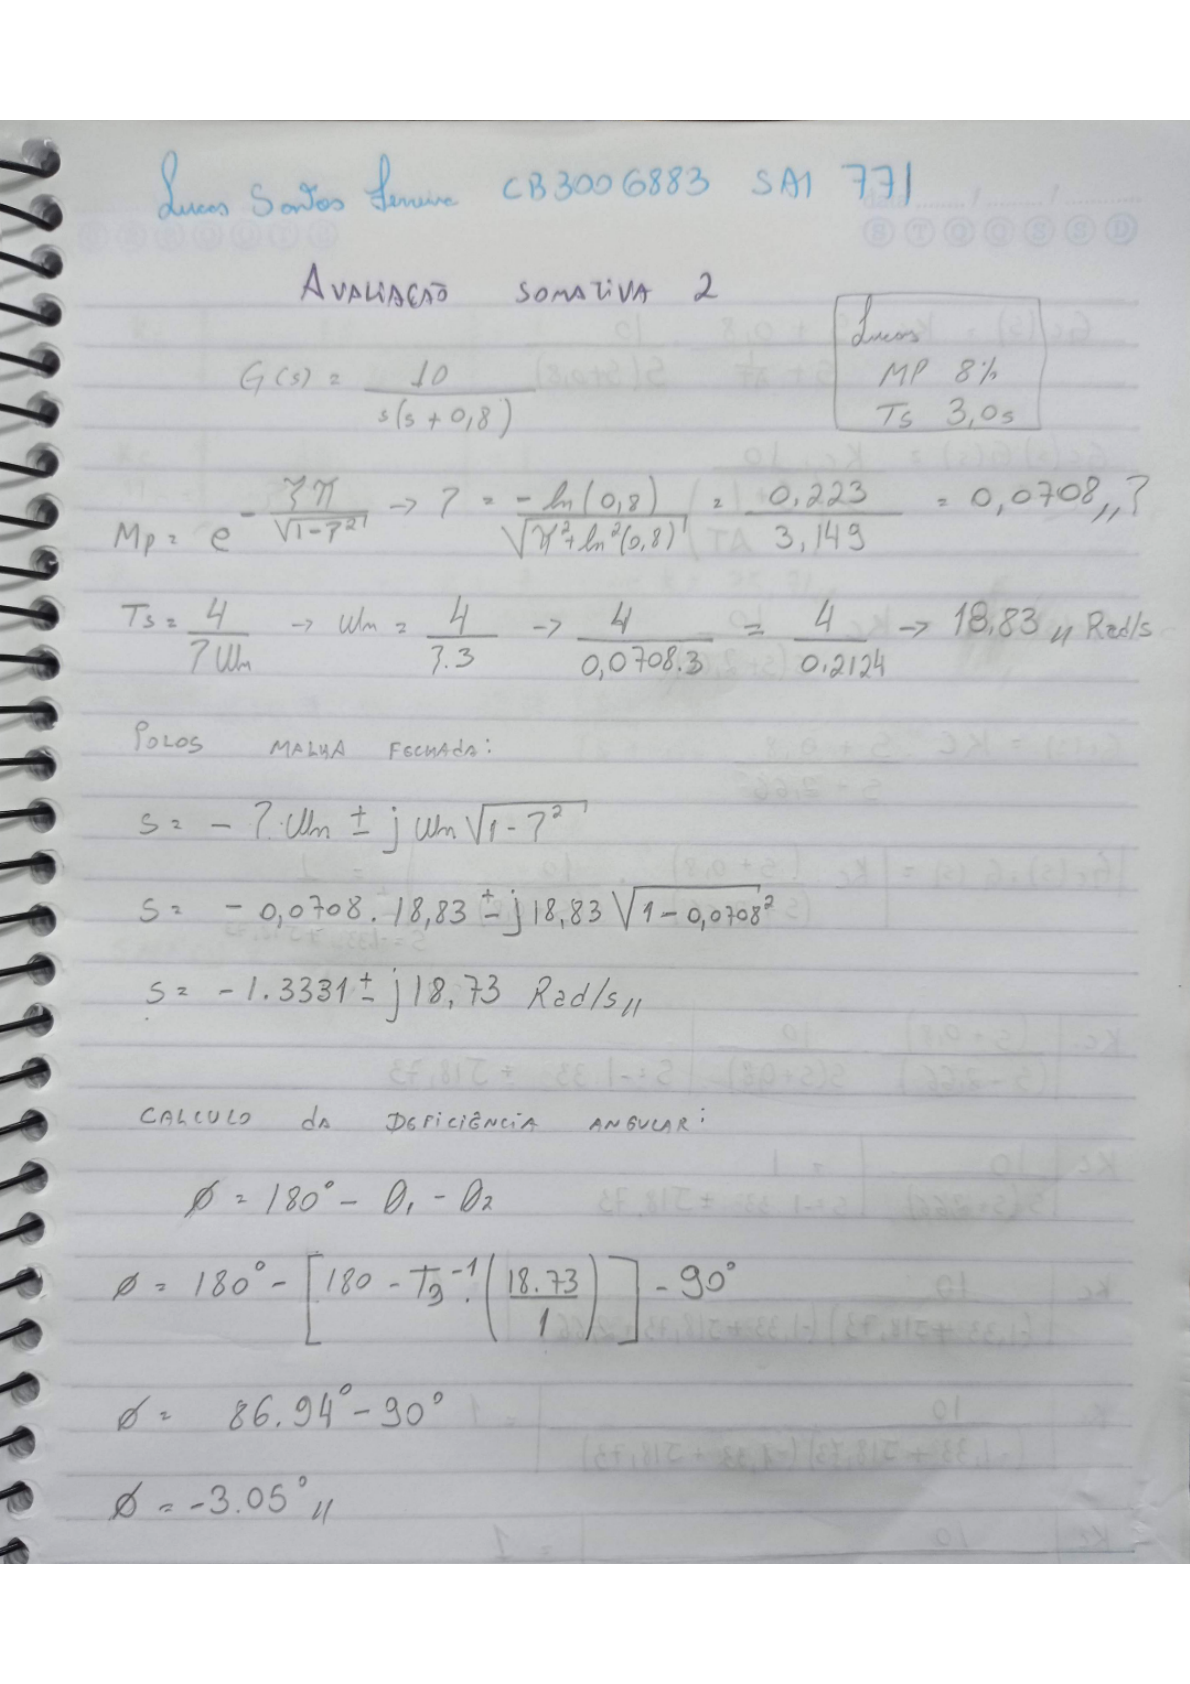 Lucas Santos Ferreira CB3006883 SAI 771
AVALIAÇÃO SOMATIVA 2
Lucas
MP 8%
Ts 3,0s
G(s) = 10 / s(s + 0,8)
Mp = e^(-ζπ/√(1-ζ²)) → ζ = -ln(0,8) / √(π²+ln²(0,8)) = 0,223 / 3,149 = 0,0708 ,, ζ
Ts = 4 / ζWn → Wn = 4 / ζ.3 → 4 / 0,0708.3 = 4 / 0,2124 → 18,83 ,, Rad/s
POLOS MALHA FECHADA:
S = - ζ.Wn ± j Wn √(1-ζ²)
S = - 0,0708 . 18,83 ± j 18,83 √(1-0,0708²)
S = - 1.3331 ± j 18,73 Rad/s ,,
CALCULO DA DEFICIÊNCIA ANGULAR:
Ø = 180° - θ₁ - θ₂
Ø = 180° - [180 - Tg⁻¹.(18.73 / 1)] - 90°
Ø = 86.94° - 90°
Ø = -3.05° ,,